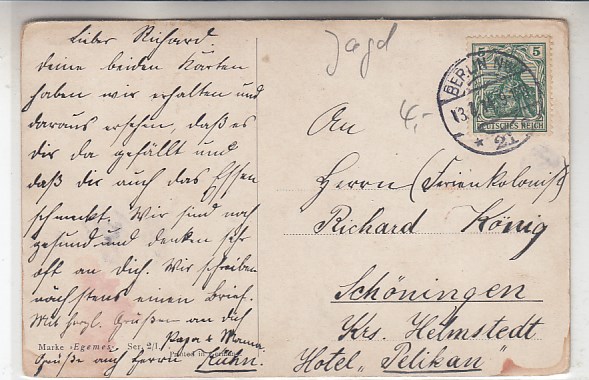 Lieber Richard.
Deine beiden Karten
haben wir erhalten und
daraus ersehen, daß es
dir da gefällt und
daß dir auch das Essen
schmeckt. Wir sind noch
gesund und denken sehr
oft an dich. Wir schreiben
nächstens einen Brief.
Mit herzl. Grüßen an dich
Papa & Mama.
Grüße auch Herrn
Marke »Egemes« Ser. 2/1.
Printed in Germany
Jagd
4,-
BERLIN NW
13.
* 21
5 5
DEUTSCHES REICH
An
Herrn (Ferienkolonist)
Richard König
Schöningen
Krs. Helmstedt
Hotel „Pelikan"